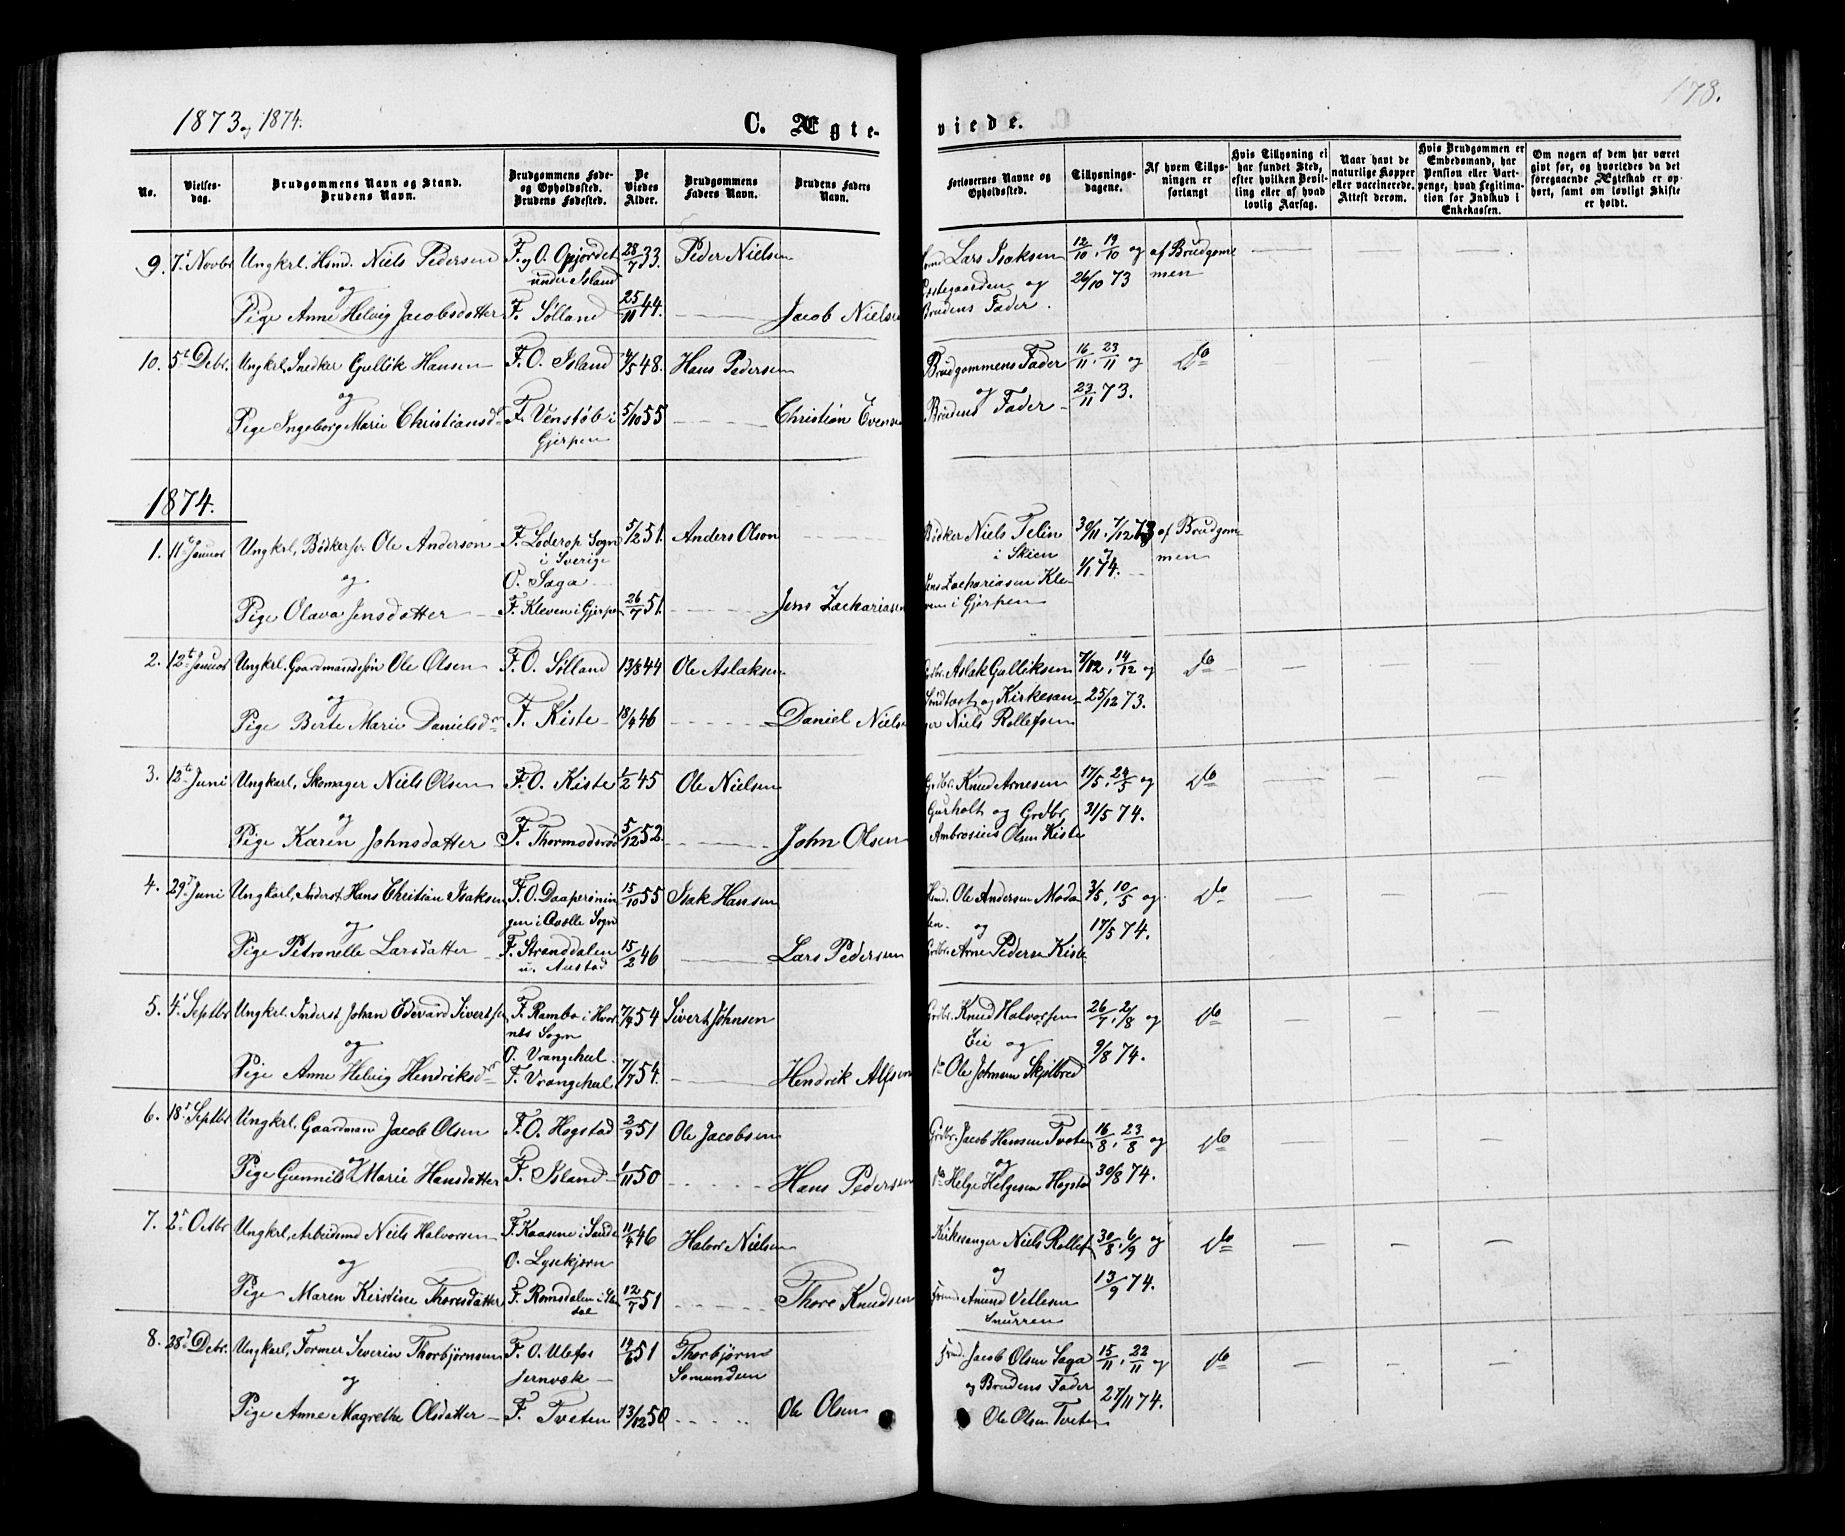 178.
1873 og 1874.
C. Ægte-
viede.
No.
Vielses-
dag.
Brudgommens Navn og Stand.
Brudens Navn.
Brudgommens Føde-
og Opholdssted.
Brudens Fødested.
De
Viedes
Alder.
Brudgommens
Faders Navn.
Brudens Faders
Navn.
Forlovernes Navne og
Opholdssted.
Tillysnings-
dagene.
Af hvem Tillys-
ningen er
forlangt
Hvis Tillysning ei
har fundet Sted,
efter hvilken Bevil-
ling eller af hvad
lovlig Aarsag.
Naar havt de
naturlige Kopper
eller vaccinerede.
Attest derom.
Hvis Brudgommen er
Embedsmand, har
Pension eller Vart-
penge, hvad Legitima-
tion for Indskud i
Enkekassen.
Om nogen af dem har været
gift før, og hvorledes da det
foregaaende Ægteskab er op-
hørt, samt om lovligt Skifte
er holdt.
9. 7de Novbr Ungkrl. Hsmd. Niels Pedersen F. og O. Opjordet 28/7 33. Peder Nielsen Lars Isaksen 12/10, 19/10 og af Brudgom-
og under Island Prestegaarden og 26/10 73 men
Pige Anne Helvig Jacobsdatter F. Sølland 25/11 44. Jacob Nielsen Brudens Fader.
10. 5te Debr. Ungkrl. Snedker Gullik Hansen F.O. Island 4/5 48. Hans Pedersen Brudgommens Fader 16/11, 23/11 og Do
og og 23/11 73.
Pige Ingeborg Marie Christiansdr F. Venstøb i 5/10 55 Christian Evensen Brudens Fader
Gjerpen
1874.
1. 11te Januar Ungkrl, Bødkersv. Ole Anderson F. Loderop Sogn 5/2 51. Anders Olson Bødker Niels Telin 30/11, 7/12 73 af Brudgom-
i Sverige i Skien og men
og O. Saga Jens Zachariasen Kle- 1/1 74.
Pige Olava Jensdatter F. Kleven i Gjerpen 26/7 51. Jens Zachariasen ven i Gjerpen
2. 12te Januar Ungkrl. Gaardmandssøn Ole Olsen F.O. Sølland 13/8 44 Ole Aslaksen Grdbr. Aslak Gulliksen 7/12, 14/12 og Do
og og Kirkesan- 25/12 73.
Pige Berte Marie Danielsdr F. Kiste 18/4 46 Daniel Niels ger Niels Rollefsen
3. 12te Juni Ungkarl, Skomager Niels Olsen F.O. Kiste 1/2 45 Ole Nielsen Grdbr. Knud Arnesen 17/5, 24/5 og Do
og Gurholt og Grdbr. 31/5 74.
Pige Karen Johnsdatter F. Thormodsrød 5/12 52. John Olsen Ambrosius Olsen Kiste
4. 29de Juni Ungkarl, Inderst Hans Christian Isaksen F.O. Daaperønin- 15/10 55 Isak Hansen Hsmd. Ole Andersen Moda- 3/5, 10/5 og Do
og gen i Qvelle Sogn len og 17/5 74.
Pige Petronelle Larsdatter F. Stranddalen 15/2 46 Lars Pedersen Grdbr. Arne Pedersen Kiste
u. Austad
5. 4de Septbr Ungkrl. Inderst Johan Edevard Sivertsen F. Rambo i Hvar- 7/9 54 Sivert Johnsen Grdbr. Knud Halvorsen 26/7, 2/8 og Do
og nes Sogn Eie og 9/8 74.
O. Vrangehul
Pige Anne Helvig Hendriksdr F. Vrangehul 7/7 54. Hendrik Alfsen Do Ole Johnsen Skjelbred
6. 18de Septbr Ungkrl. Gaardmand Jacob Olsen F.O. Hogstad 2/9 51 Ole Jacobsen Grdbr. Jacob Hansen Tveten 16/8, 23/8 og Do
og og 30/8 74.
Pige Gunnild Marie Hansdatter F. Island 1/11 50 Hans Pedersen Do Helge Helgesen Hogstad
7. 2den Octbr Ungkrl, Arbeidsmd Niels Halvorsen F. Kaasene i Saude 11/4 46 Halvor Nielsen Kirkesanger Niels Rollefs. 30/8, 6/9 og Do
og O. Lysekjærn og 13/9 74.
Pige Maren Kirstine Thoresdatter F. Romsdalen i Slem- 12/7 51 Thore Knudsen Amund Vetlesen
dal Snurren
8. 28de Debr. Ungkarl, Former Severin Thorbjørnsen F.O. Ulefos 14/6 51 Thorbjørn Jacob Olsen Saga 15/11, 22/11 og Do
og Jernværk Somundsen og Brudens Fader 27/11 74.
Pige Anne Magrethe Olsdatter F. Tveten 13/12 50 Ole Olsen Ole Olsen Tveten